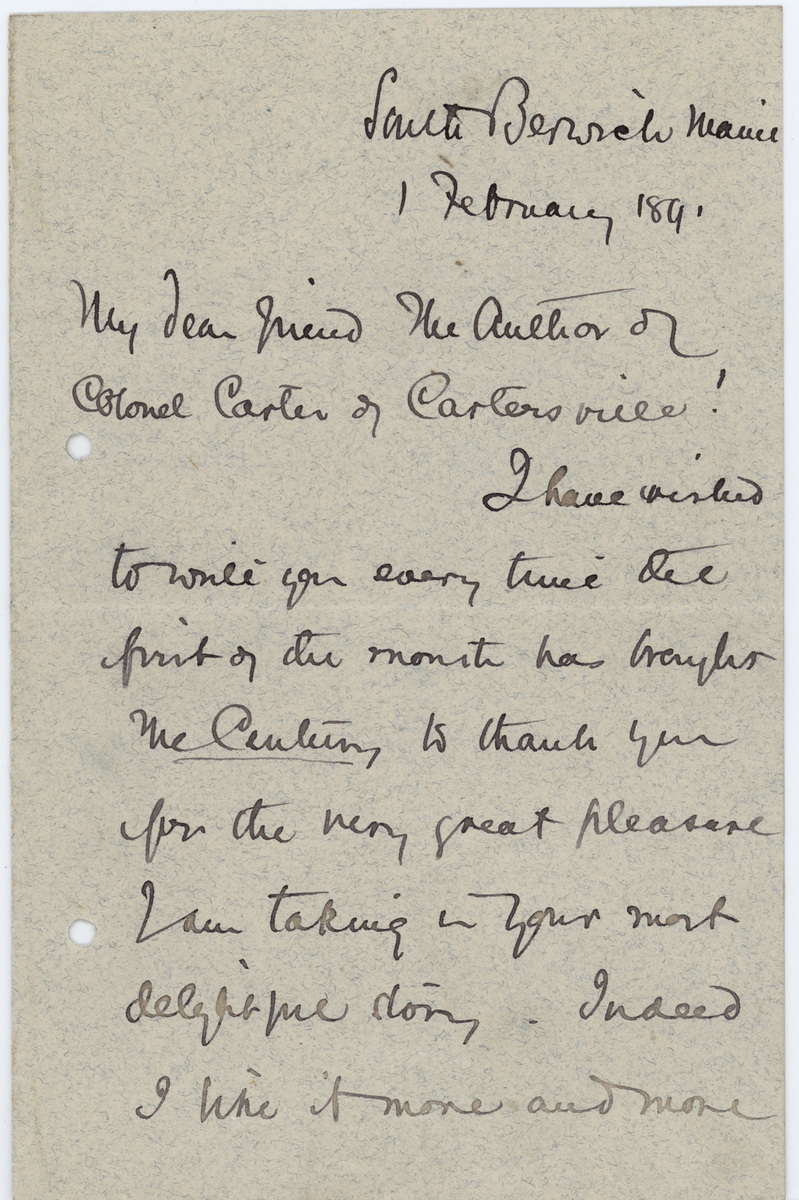 South Berwick Maine
1 February 1891
My dear friend The Author of
Colonel Carter of Cartersville!
I have wished
to write you every time the
first of the month has brought
The Century to thank you
for the very great pleasure
I am taking in your most
delightful story. Indeed
I like it more and more